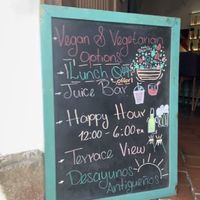 - Vegan & Vegetarian
Options
- 1 Lunch Q49
offer!
- Juice Bar
- Happy Hour
12:00 - 6:00 P.M
- Terrace View
- Desayunos
Antigueños